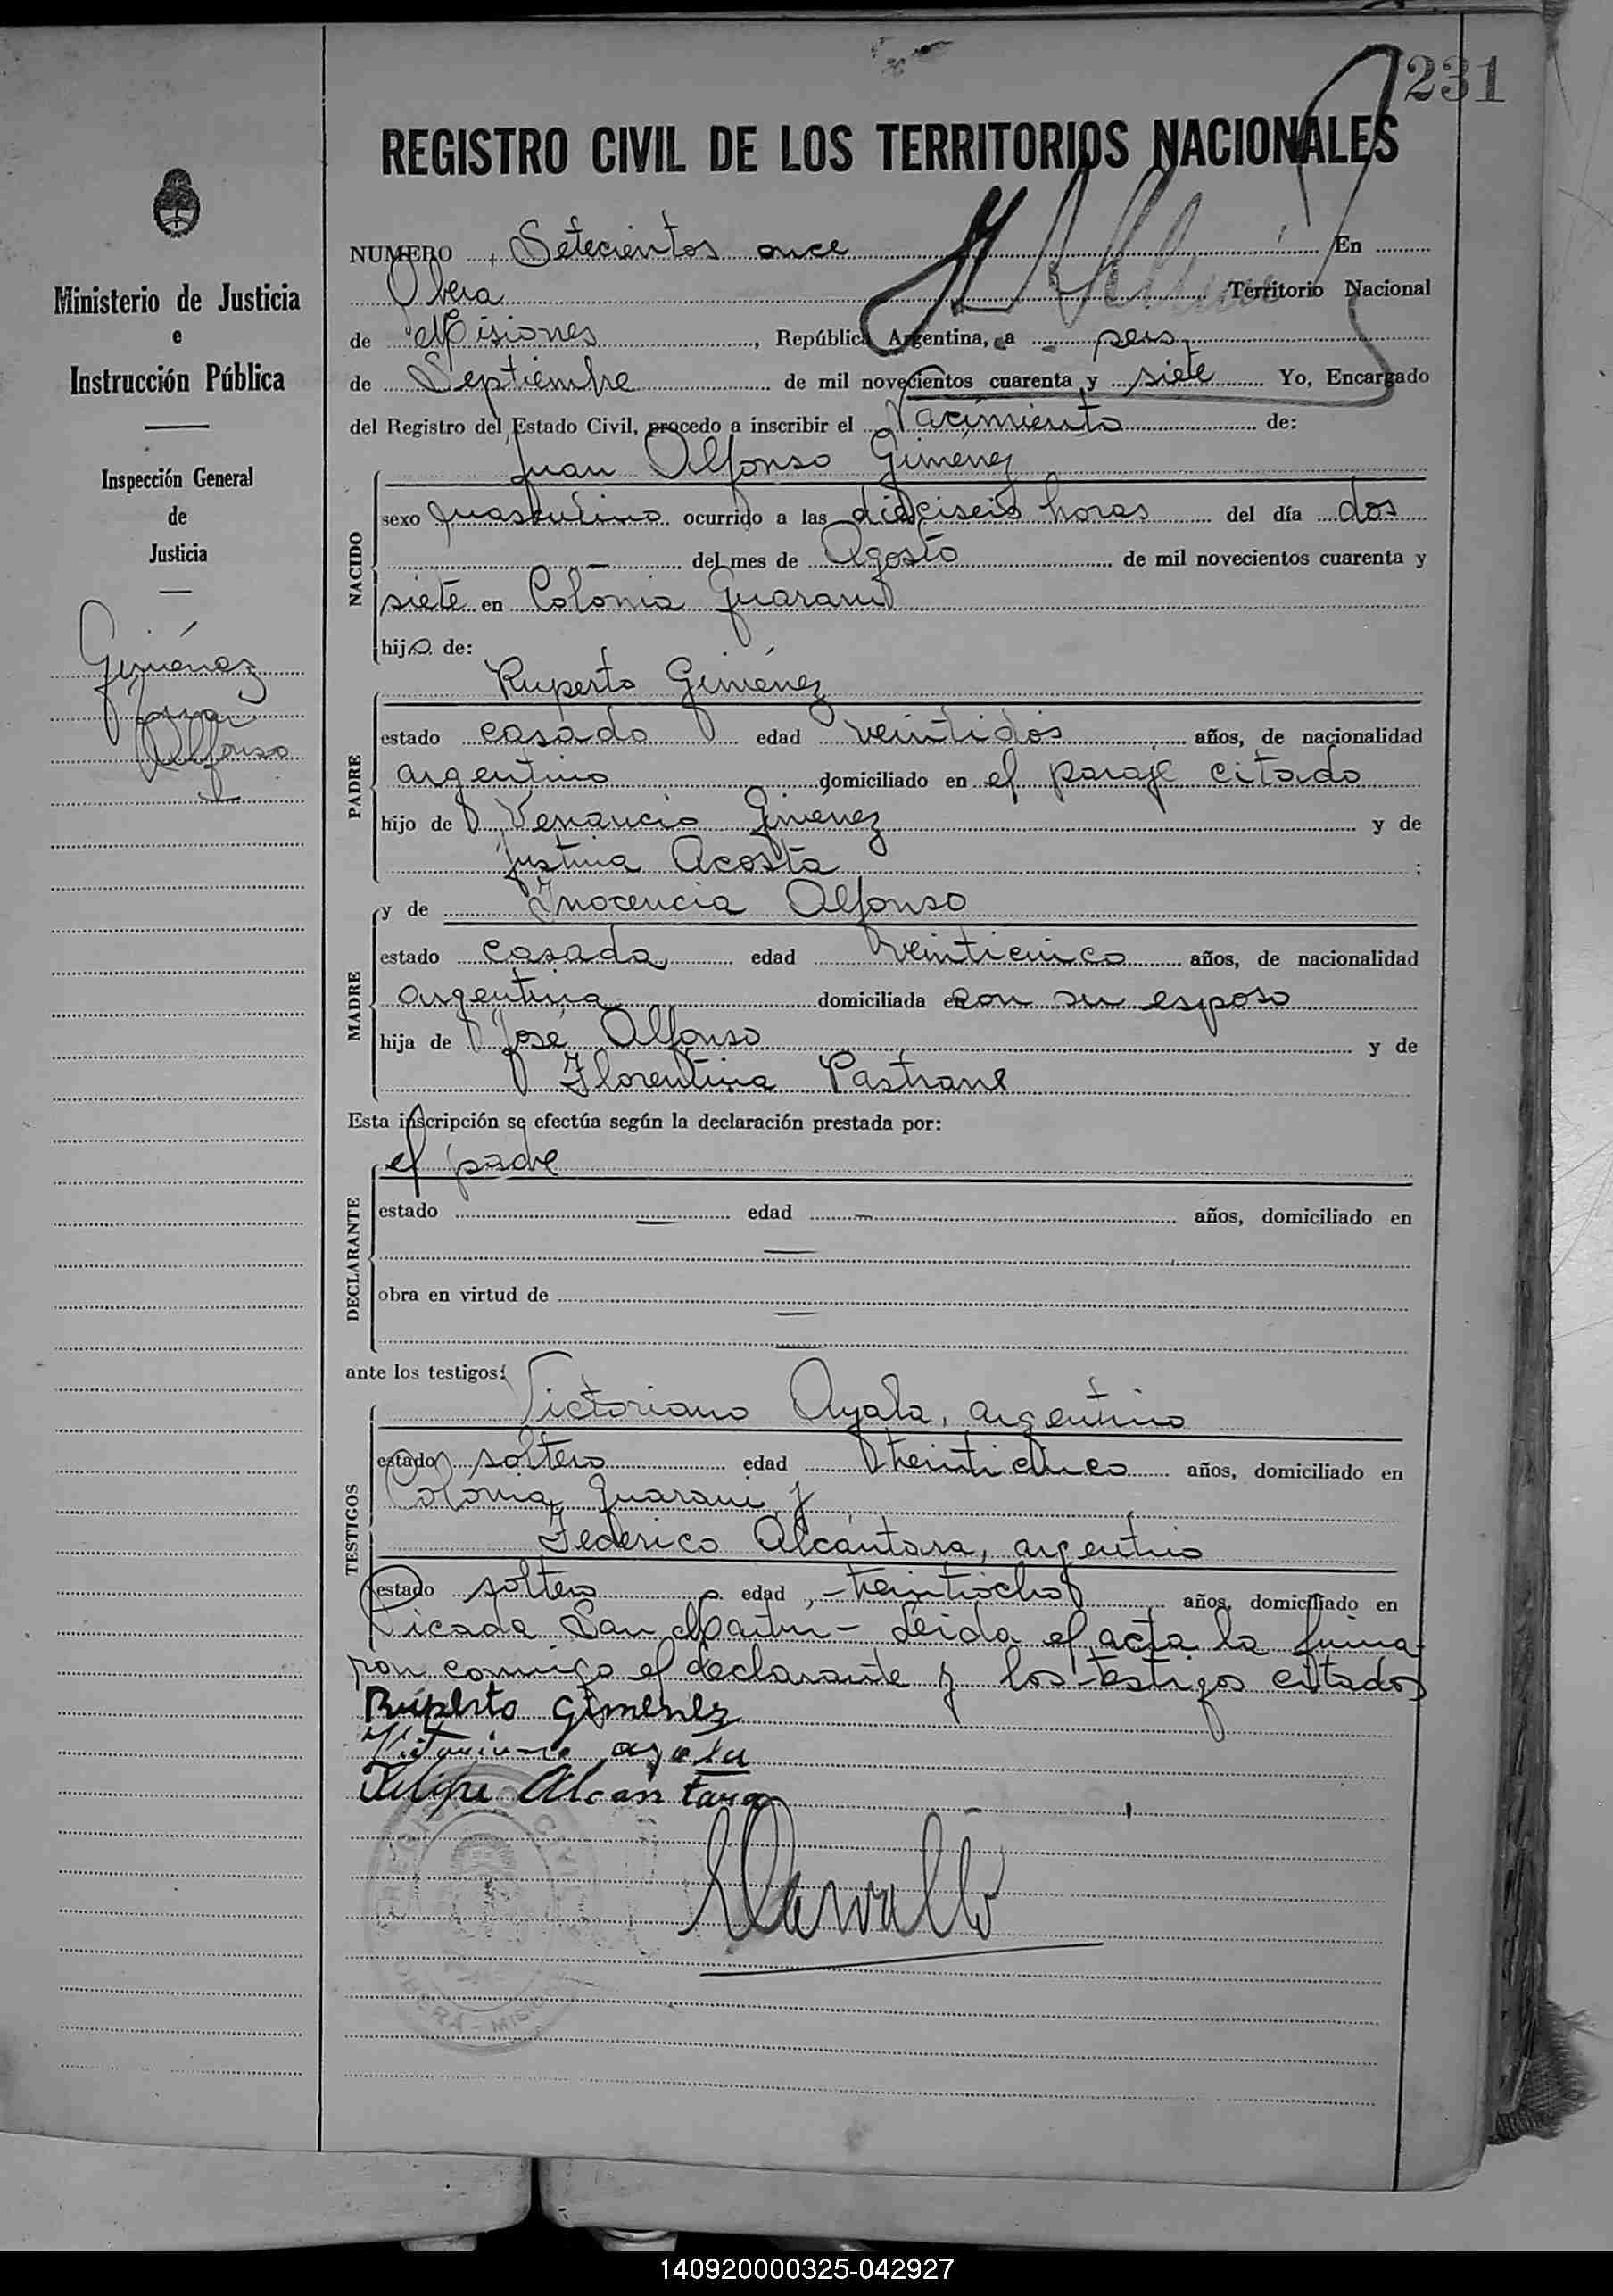 231
REGISTRO CIVIL DE LOS TERRITORIOS NACIONALES
Ministerio de Justicia
e
Instrucción Pública
Inspección General
de
Justicia
Giménez
Juan
Alfonso
NUMERO Setecientos once En
Obera Territorio Nacional
de Misiones, República Argentina, a seis
de Septiembre de mil novecientos cuarenta y siete Yo, Encargado
del Registro del Estado Civil, procedo a inscribir el Nacimiento de:
Juan Alfonso Gimenez
NACIDO
sexo masculino ocurrido a las dieciseis horas del día dos
del mes de Agosto de mil novecientos cuarenta y
siete en Colonia Guarani
hijo de:
Ruperto Giménez
PADRE
estado casado edad veintidos años, de nacionalidad
argentino domiciliado en el paraje citado
hijo de Venancio Gimenez y de
Justina Acosta ;
MADRE
y de Inocencia Alfonso
estado casada edad veinticinco años, de nacionalidad
argentina domiciliada en con su esposo
hija de José Alfonso y de
Florentina Pastrane
Esta inscripción se efectúa según la declaración prestada por:
el padre
DECLARANTE
estado — edad — años, domiciliado en
—
obra en virtud de —
—
ante los testigos:
Victoriano Ayala, argentino
TESTIGOS
estado soltero edad treinticinco años, domiciliado en
Colonia Guarani y
Federico Alcántara, argentino
estado soltero edad treintiocho años, domiciliado en
Picada San Martin - Leida el acta la firma
ron conmigo el declarante y los testigos citados
Ruperto Gimenez
Victoriano ayala
Felipe Alcantara
REGISTRO CIVIL
OBERÁ - MISIONES
140920000325-042927